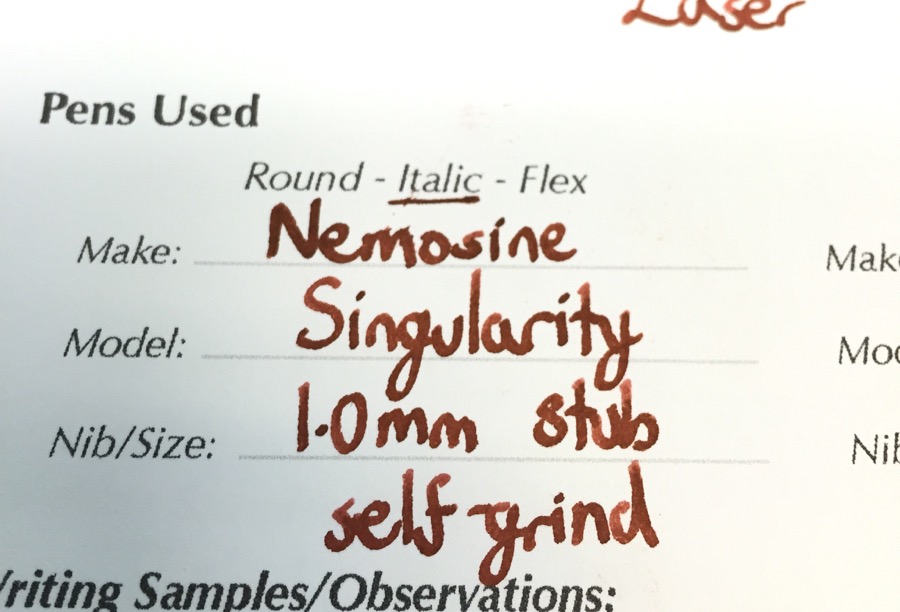 Laser
Pens Used
Round - Italic - Flex
Make: Nemosine
Model: Singularity
Nib/Size: 1.0mm stub
self-grind
Writing Samples/Observations: